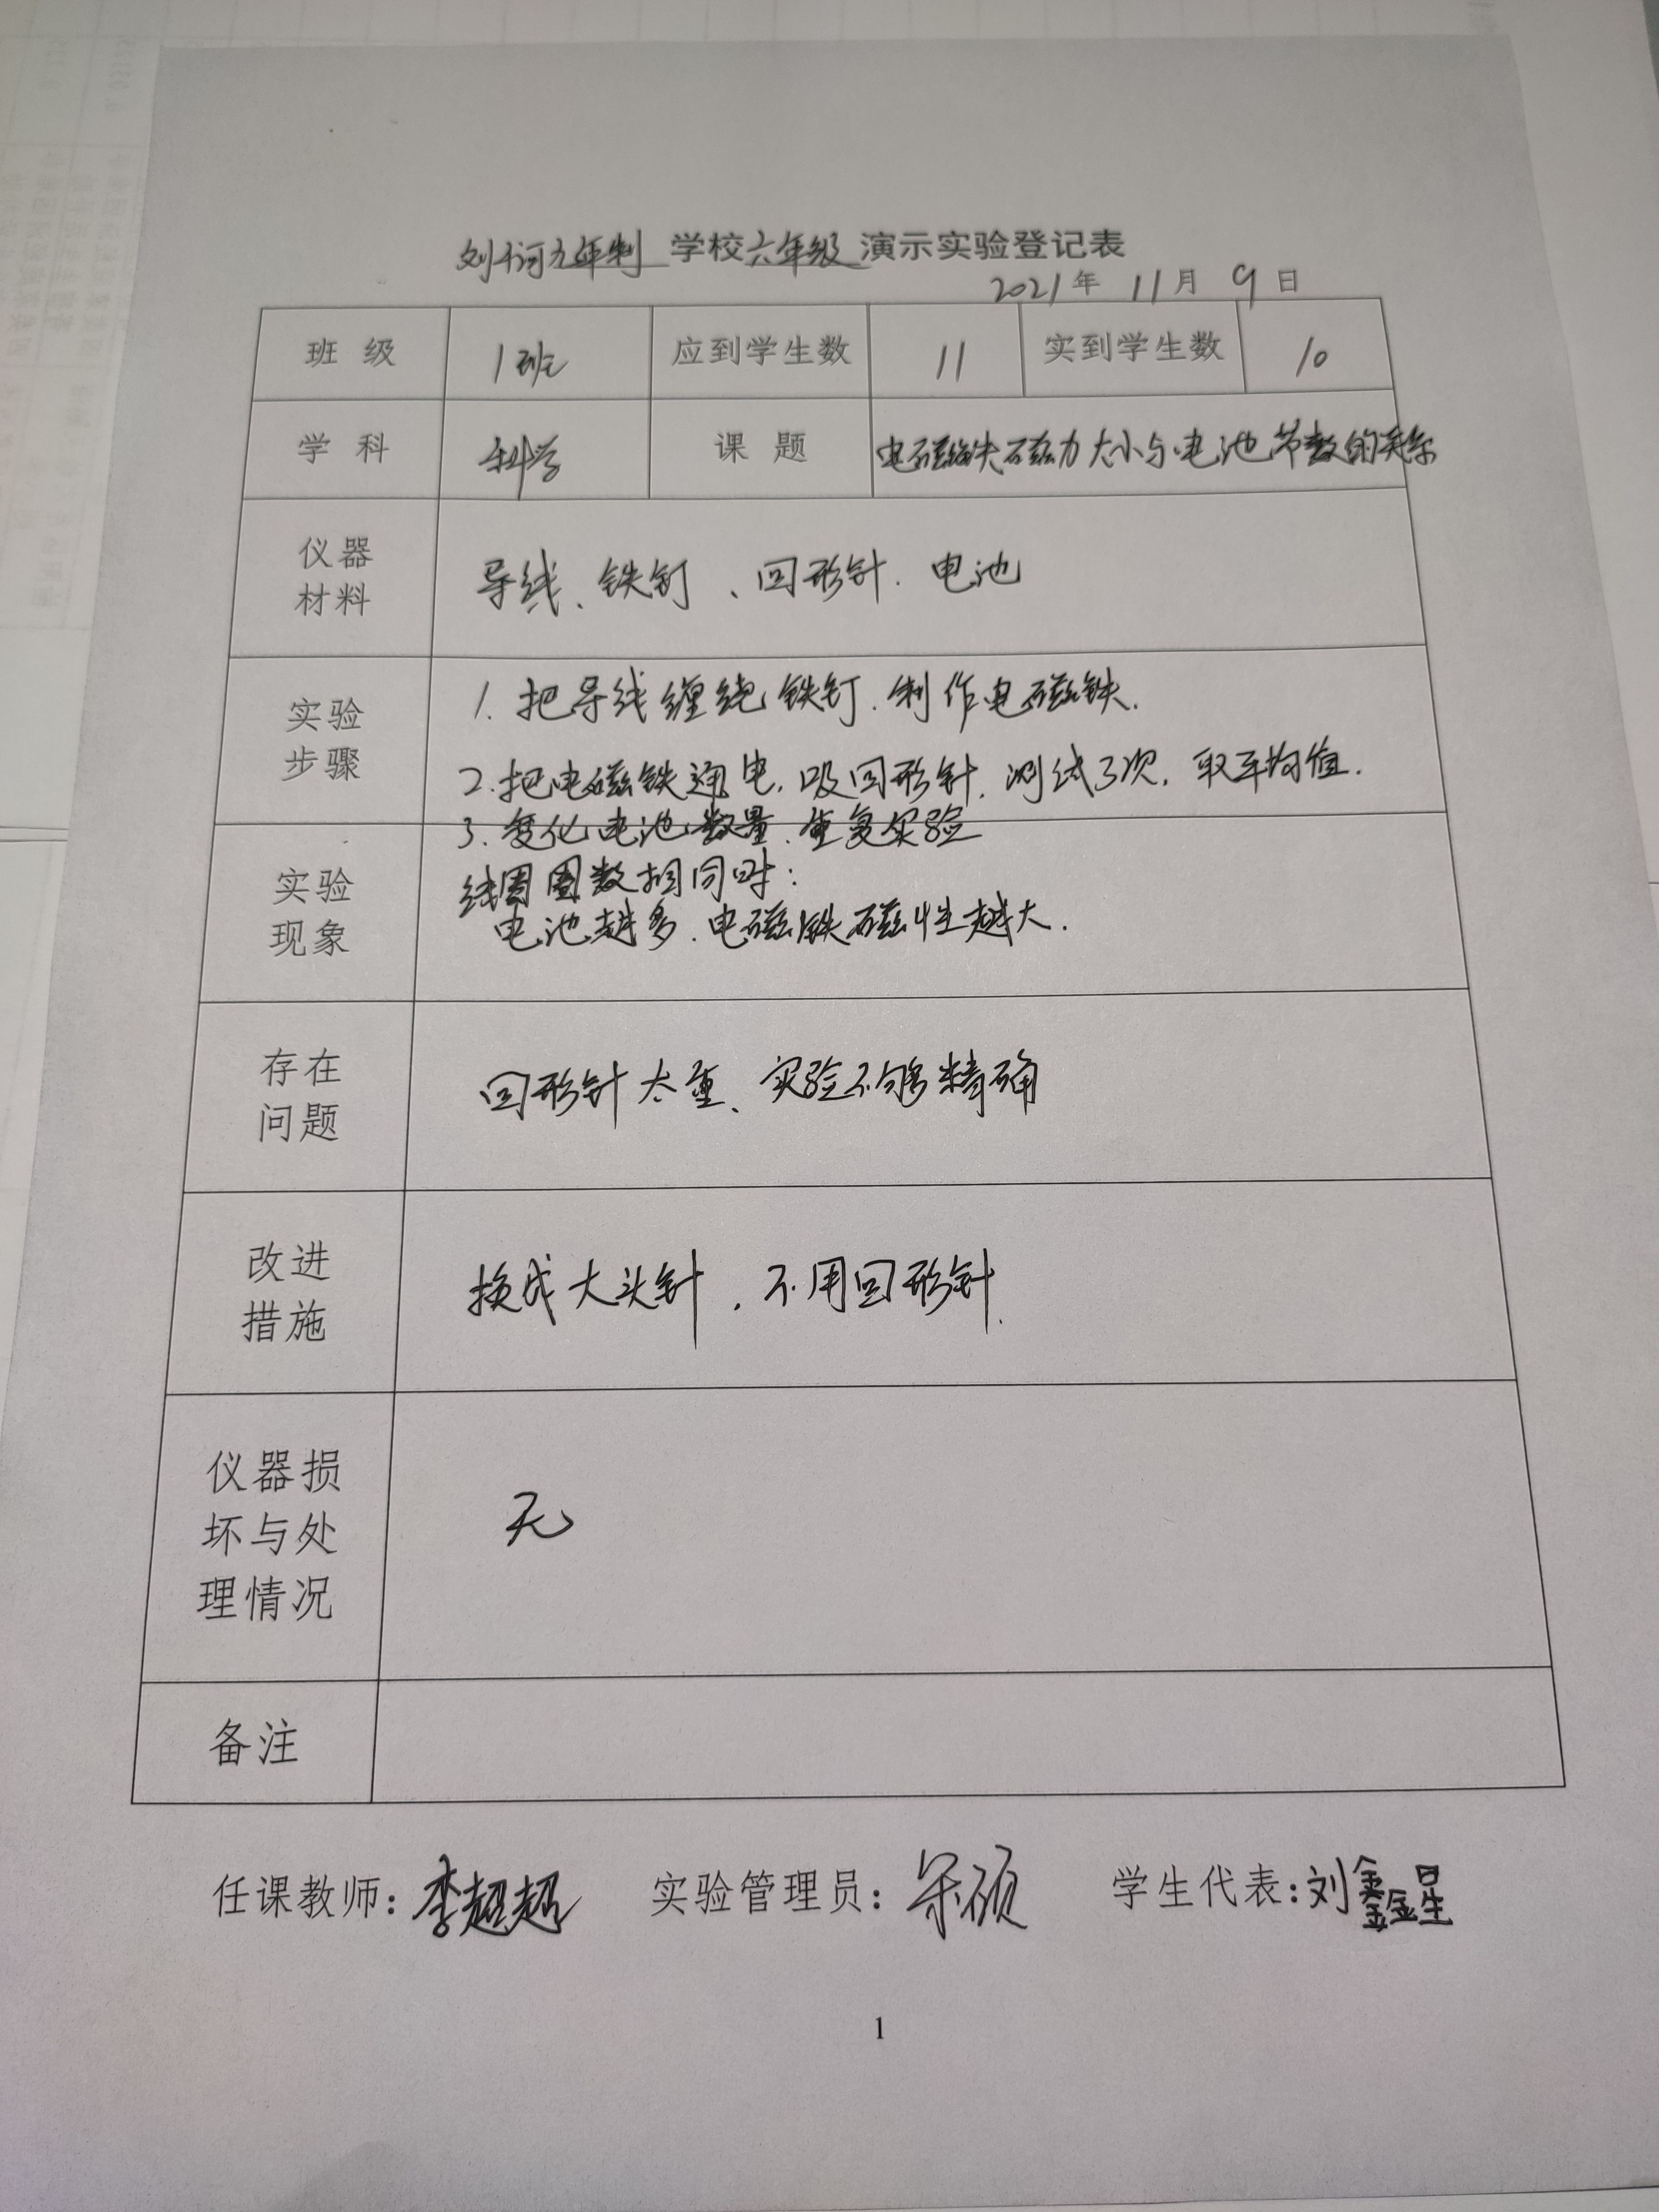 刘河九年制 学校六年级 演示实验登记表
2021年 11月 9日
班 级 1班 应到学生数 11 实到学生数 10
学 科 科学 课 题 电磁铁磁力大小与电池节数的关系
仪器
材料
导线、铁钉、回形针.电池
实验
步骤
1.把导线缠绕铁钉.制作电磁铁.
2.把电磁铁通电,吸回形针.测试3次,取平均值.
3.变化电池数量、重复实验
实验
现象
线圈圈数相同时:
电池越多.电磁铁磁性越大.
存在
问题
回形针太重、实验不够精确
改进
措施
换成大头针,不用回形针.
仪器损
坏与处
理情况
无
备注
任课教师:李超超 实验管理员: 学生代表:刘鑫星
1